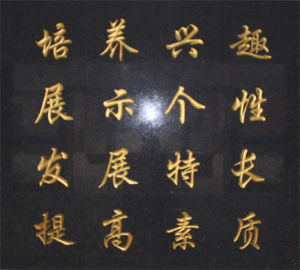 培养兴趣
展示个性
发展特长
提高素质